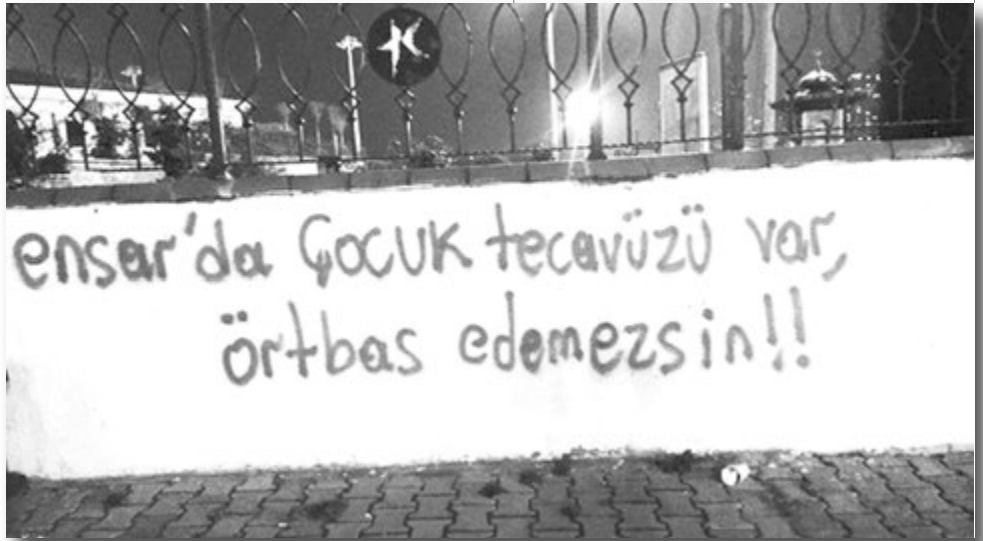 K
ensar'da Çocuk tecavüzü var,
örtbas edemezsin!!